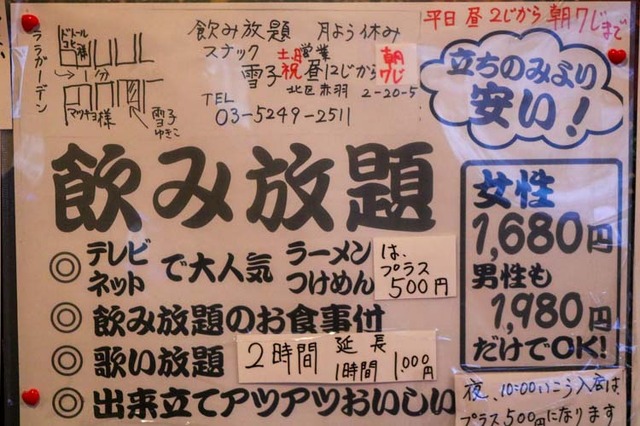 飲み放題 月よう休み
スナック 土日祝 営業
雪子 昼12じから 朝7じ
北区赤羽 2-20-5
TEL
03-5249-2511
平日 昼2じから 朝7じまで
ララガーデン
ドトール
コヒ様
1分
マツヤ様
雪子
ゆきこ
立ちのみより
安い!
飲み放題
女性
1,680円
男性も
1,980円
だけでOK!
◎テレビ ネットで大人気 ラーメン つけめん
は、プラス500円
◎飲み放題のお食事付
◎歌い放題 2時間 延長 1時間 1,000円
◎出来立てアツアツおいしい
夜、10:00いこう入店は、
プラス500円になります